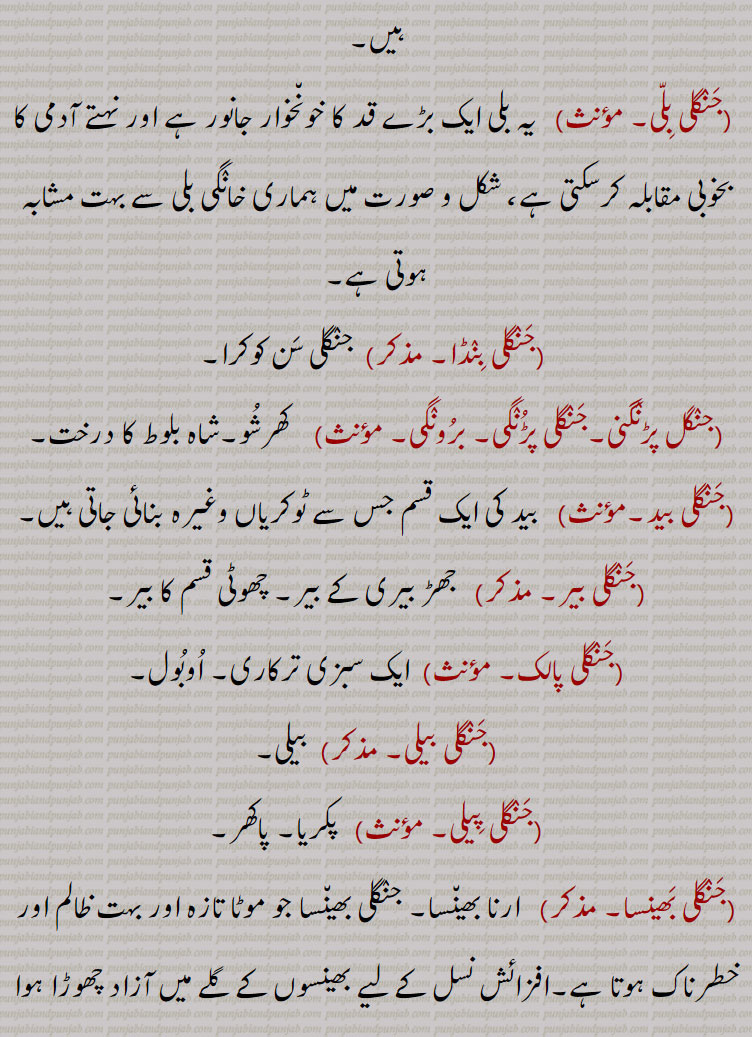 ہیں۔
(جَنْگلی بِلّی۔ مؤنث) یہ بلی ایک بڑے قد کا خونْخوار جانور ہے اور نہتے آدمی کا
بخوبی مقابلہ کرسکتی ہے، شکل و صورت میں ہماری خانْگی بلی سے بہت مشابہ
ہوتی ہے۔
(جَنْگلی بِنْڈا۔ مذکر) جنْگلی سَن کوکرا۔
(جنْگل پڑنْگنی۔جَنْگلی پڑُنْگی۔ برُونْگی۔ مؤنث) کھرشُو۔شاہ بلوط کا درخت۔
(جَنْگلی بید۔مؤنث) بید کی ایک قسم جس سے ٹوکریاں وغیرہ بنائی جاتی ہیں۔
(جَنْگلی بیر۔ مذکر) جھڑ بیری کے بیر۔ چھوٹی قسم کا بیر۔
(جَنْگلی پالک۔ مؤنث) ایک سبزی ترکاری۔ اُوبُول۔
(جَنْگلی بیلی۔ مذکر) بیلی۔
(جَنْگلی پِیلی۔ مؤنث) پکریا۔ پاکھر۔
(جَنْگلی بَھینسا۔ مذکر) ارنا بھینْسا۔ جنْگلی بھینْسا جو موٹا تازہ اور بہت ظالم اور
خطرناک ہوتا ہے۔افزائش نسل کے لیے بھینسوں کے گلے میں آزاد چھوڑا ہوا